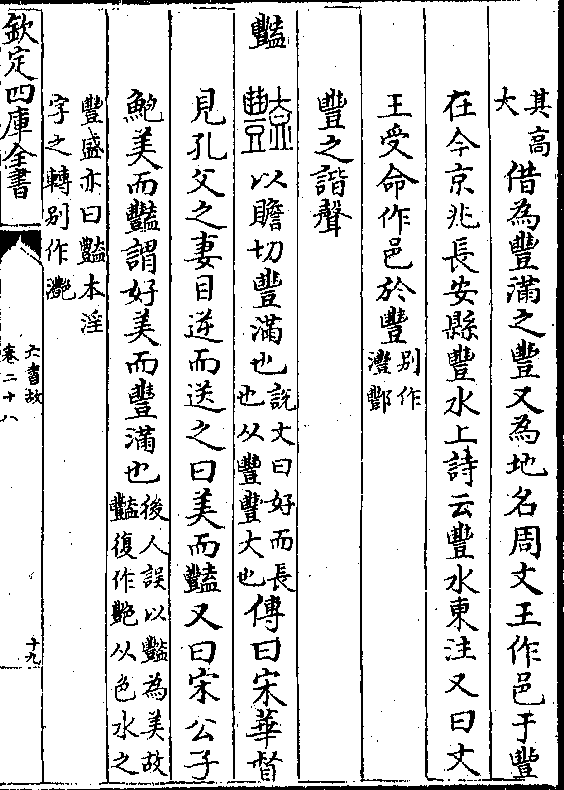 其高大借為豐滿之豐又為地名周文王作邑于豐
在今京兆長安縣豐水上詩云豐水東注又曰文
王受命作邑於豐別作灃酆
豐之諧聲
豔以贍切豐滿也說文曰好而長也从豐豐大也傳曰宋華督
見孔父之妻目逆而送之曰美而豔又曰宋公子
鮑美而豔謂好美而豐滿也後人誤以豔為美故豔復作艷从色水之
豐盛亦曰豔本淫字之轉别作灔
欽定四庫全書
六書故
卷二十八
十九